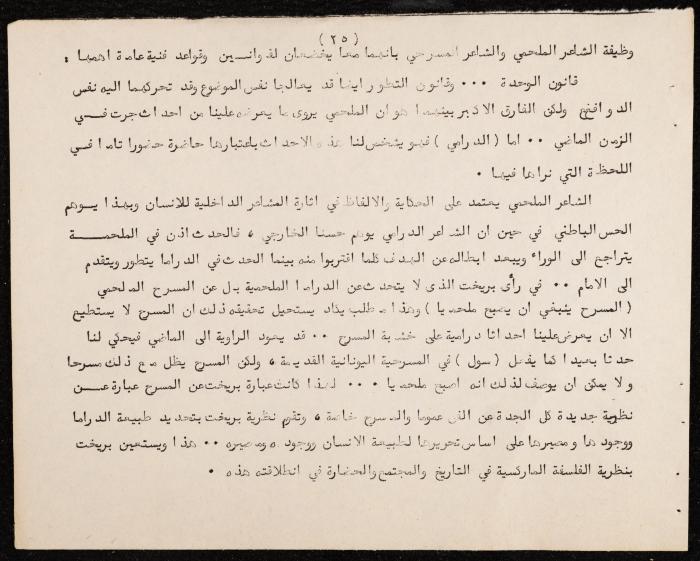 ( ٢٥ )
وظيفة الشاعر الملحمي والشاعر المسرحي بانهما معا يخضعان لقوانين وقواعد فنية عامة اهمها :
قانون الوحدة ... وقانون التطور ايضا قد يعالجا نفس الموضوع وقد تحركهما اليه نفس
الدوافع ولكن الفارق الاكبر بينهما هو ان الملحمي يروى ما يعرضه علينا من احداث جرت فـــي
الزمن الماضي .. اما ( الدرامي ) فهو يشخص لنا هذه الاحداث باعتبارها حاضرة حضورا تاما فـي
اللحظة التي نراها فيها .
الشاعر الملحمي يعتمد على الحكاية والالفاظ في اثارة المشاعر الداخلية للانسان وبهذا يـوهم
الحس الباطني في حين ان الشاعر الدرامي يوهم حسنا الخارجي ، فالحدث اذن في الملحمـــة
يتراجع الى الوراء ويبعد ابطاله عن الهدف كلما اقتربوا منه بينما الحدث في الدراما يتطور ويتقدم
الى الامام .. في رأى بريخت الذى لا يتحدث عن الدراما الملحمية بل عن المسرح الملحمي
( المسرح ينبغي ان يصبح ملحميا ) وهذا مطلب يكاد يستحيل تحقيقه ذلك ان المسرح لا يستطيع
الا ان يعرض علينا احداثا درامية على خشبة المسرح .. قد يعود الراوية الى الماضي فيحكي لنا
حدثا بعيدا كما يفعل ( سول ) في المسرحية اليونانية القديمة ، ولكن المسرح يظل مع ذلك مسرحا
ولا يمكن ان يوصف لذلك انه اصبح ملحميا ... لهذا كانت عبارة بريخت عن المسرح عبارة عــن
نظرية جديدة كل الجدة عن الفن عموما والمسرح خاصة ، وتقوم نظرية بريخت بتحديد طبيعة الدراما
ووجودها ومصيرها على اساس تحريرها لطبيعة الانسان ووجوده ومصيره .. هذا ويستعين بريخت
بنظرية الفلسفة الماركسية في التاريخ والمجتمع والحضارة في انطلاقته هذه .